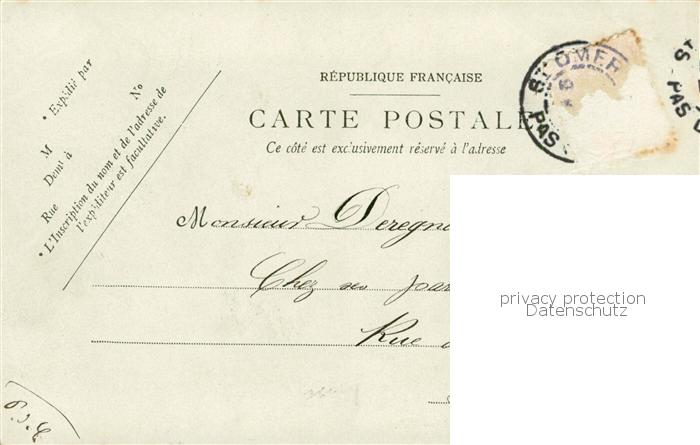 RÉPUBLIQUE FRANÇAISE
CARTE POSTALE
Ce côté est exclusivement réservé à l'adresse
• Expédié par
M
Demt à
Rue No
• L'Inscription du nom et de l'adresse de
l'expéditeur est facultative.
ST OMER
PAS
ST
PAS
Monsieur Deregn
Chez ses par
Rue
privacy protection
Datenschutz